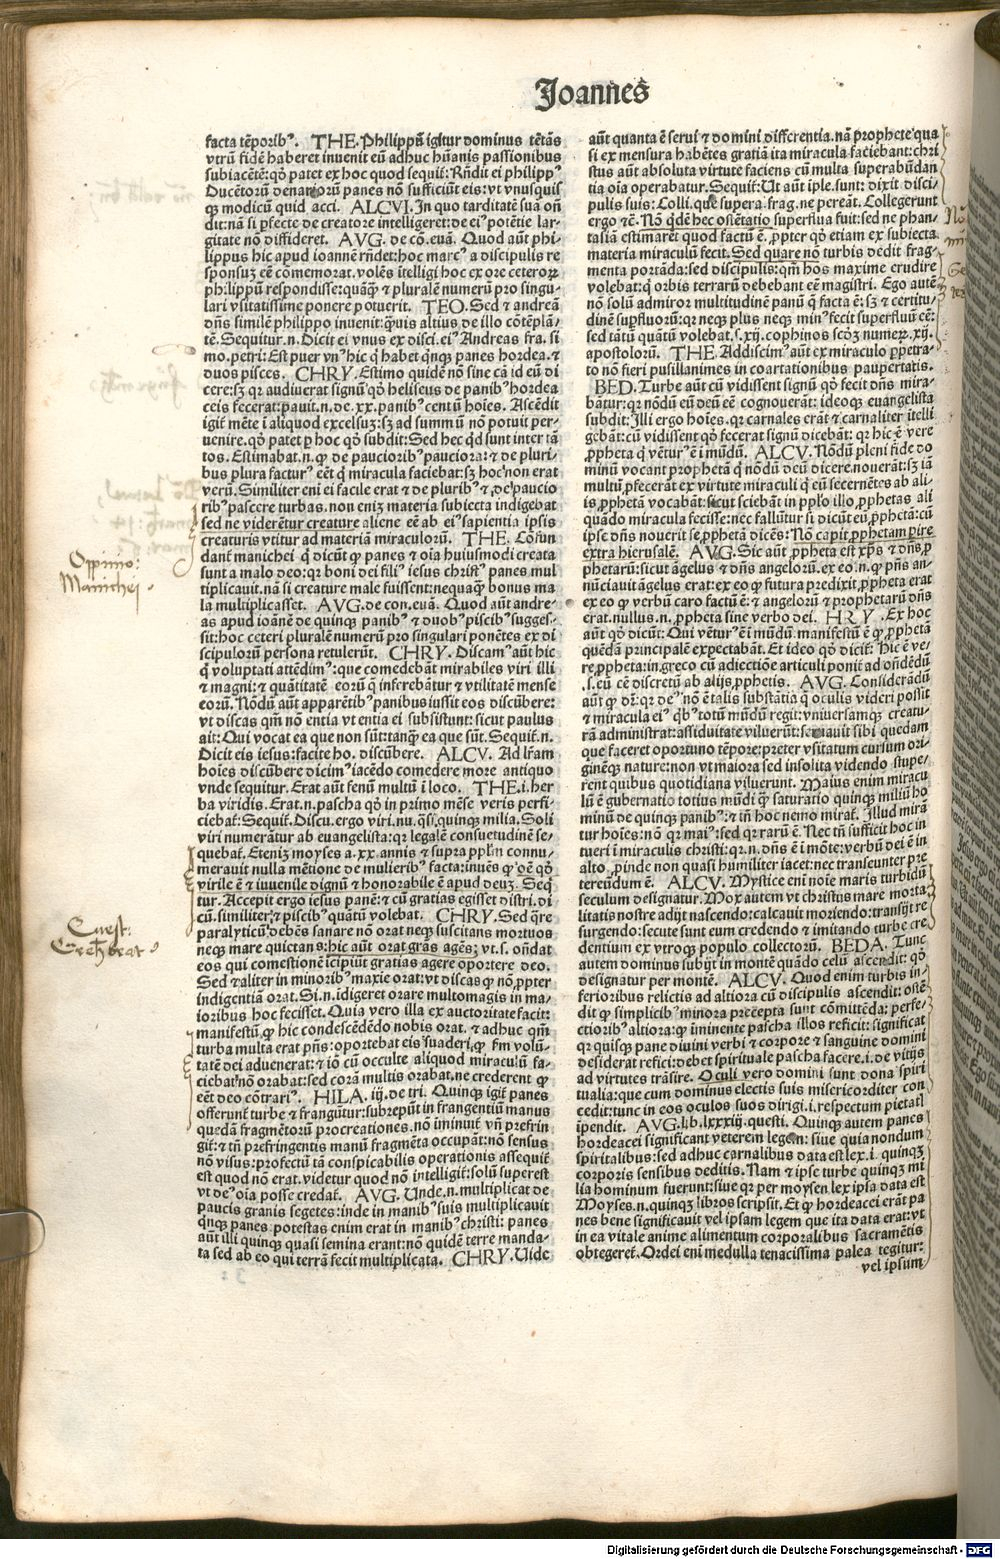 Joannes
facta tēporibꝰ. THE. Philippū igitur dominus tētās
vtrū fidē haberet inuenit eū adhuc hūanis passionibus
subiacētē: qđ patet ex hoc quod sequit̄: Rn̄dit ei philippꝰ
Ducētorū denariorū panes nō sufficiūt eis: vt vnusquis
qꝫ modicū quid acci. ALCVI. In quo tarditatē suā oñ
dit: nā si ꝑfecte de creatore intelligeret: de eiꝰ potētie lar-
gitate nō diffideret. AVG. de cō. euā. Quod aūt phi-
lippus hic apud ioannē rn̄det: hoc marcꝰ a discipulis re
sponsuꝫ eē cōmemorat. volēs ītelligi hoc ex ore ceteroꝝ
philippū respondisse: quāqꝫ ⁊ pluralē numerū pro singu-
lari vsitatissime ponere potuerit. TEO. Sed ⁊ andreā
dn̄s similē philippo inuenit: ꝙuis altius de illo cōtēplā-
tē. Sequitur. n. Dicit ei vnus ex disci. eiꝰ Andreas fra. si
mo. petri: Est puer vnꝰ hic q̄ habet q̄nqꝫ panes hordea. ⁊
duos pisces. CHRY. Estimo quidē nō sine cā id eū di
cere: sꝫ qꝛ audiuerat signū qđ heliseus de panibꝰ hordea
ceis fecerat: pauit. n. de. xx. panibꝰ centū hoīes. Ascēdit
igit̄ mēte ī aliquod excelsuꝫ: sꝫ ad summū nō potuit per-
uenire. qđ patet ꝑ hoc qđ subdit: Sed hec qd̄ sunt inter tā
tos. Estimabat. n. ꝙ de paucioribꝰ pauciora: ⁊ de pluri-
bus plura facturꝰ eēt q̄ miracula faciebat: sꝫ hoc non erat
verū. Similiter eni ei facile erat ⁊ de pluribꝰ ⁊ de paucio
ribꝰ pascere turbas. non eniꝫ materia subiecta indigebat
sed ne viderētur creature aliene eē ab eiꝰ sapientia ipsis
creaturis vtitur ad materiā miraculorū. THE. Cōfun
dant̄ manichei q̄ dicūt ꝙ panes ⁊ oīa huiusmodi creata
sunt a malo deo: qꝛ boni dei filiꝰ iesus christꝰ panes mul
tiplicauit. nā si creature male fuissent: nequaqꝫ bonus ma
la multiplicasset. AVG. de con. euā. Quod aūt andre-
as apud ioānē de quinqꝫ panibꝰ ⁊ duobꝰ piscibꝰ sugges-
sit: hoc ceteri pluralē numerū pro singulari ponētes ex di
scipulorū persona retulerūt. CHRY. Discamꝰ aūt hic
q̄ voluptati attēdimꝰ: que comedebāt mirabiles viri illi
⁊ magni: ⁊ quātitatē eorū q̄ inferebātur ⁊ vtilitatē mense
eorū. Nōdū aūt apparētibꝰ panibus iussit eos discūbere:
vt discas qm̄ nō entia vt entia ei subsistunt: sicut paulus
ait: Qui vocat ea que non sūt: tanqꝫ ea que sūt. Sequit̄. n.
Dicit eis iesus: facite ho. discūbere. ALCV. Ad lr̄am
hoīes discūbere dicimꝰ iacēdo comedere more antiquo
vnde sequitur. Erat aūt fenū multū ī loco. THE. i. her
ba viridis. Erat. n. pascha qđ in primo mēse veris perfi-
ciebat̄: Sequit̄. Discu. ergo viri. nu. q̄si quinqꝫ milia. Soli
viri numerātur ab euangelista: qꝛ legalē consuetudinē se-
quebat̄. Eteniꝫ moyses a. xx. annis ⁊ supra pplm̄ connu-
merauit nulla mētione de mulieribꝰ facta: inuēs ꝙ oē qđ
virile ē ⁊ iuuenile dignū ⁊ honorabile ē apud deuꝫ. Seq̄
tur. Accepit ergo iesus panē: ⁊ cū gratias egisset distri. di
cū. similiter ⁊ piscibꝰ quātū volebat. CHRY. Sed q̄re
paralyticū debēs sanare nō orat neqꝫ suscitans mortuos
neqꝫ mare quietans: hic aūt orat gr̄as agēs; vt. s. on̄dat
eos qui comestionē īcipiūt gratias agere oportere deo.
Sed ⁊ aliter in minoribꝰ maxie orat: vt discas ꝙ nō ꝓpter
indigentiā orat. Si. n. īdigeret orare multomagis in ma-
ioribus hoc fecisset. Quia vero illa ex auctoritate facit:
manifestū ꝙ hic condescēdēdo nobis orat. ⁊ adhuc qm̄
turba multa erat pn̄s: oportebat eis suaderi, ꝙ fm̄ volū-
tatē dei aduenerat: ⁊ iō cū occulte aliquod miraculū fa-
ciebat nō orabat: sed corā multis orabat, ne crederent ꝙ
eēt deo cōtrariꝰ. HILA. iij. de tri. Quinqꝫ igit̄ panes
offerunt̄ turbe ⁊ frangūtur: subrepūt in frangentiū manus
quedā fragmētorū procreationes. nō īminuit̄ vn̄ prefrin
git̄: ⁊ tn̄ prefringentis manū fragmēta occupāt: nō sensus
nō visus: profectū tā conspicabilis operationis assequit̄
est quod nō erat. videtur quod nō intelligit̄: solū superest
vt deꝰ oīa posse credat̄. AVG. Unde. n. multiplicat de
paucis granis segetes: inde in manibꝰ suis multiplicauit
q̄nqꝫ panes potestas enim erat in manibꝰ christi: panes
aūt illi quinqꝫ quasi semina erant: nō quidē terre manda-
ta sed ab eo qui terrā fecit multiplicata. CHRY. Uide
aūt quanta ē serui ⁊ domini differentia. nā prophete qua
si ex mensura habētes gratiā ita miracula faciebant: chri
stus aūt absoluta virtute faciens cū multa superabūdan
tia oīa operabatur. Sequit̄: Ut aūt iple. sunt: dixit disci-
pulis suis: Colli. que supera. frag. ne pereāt. Collegerunt
ergo ⁊c̄. Nō qdē hec ostētatio superflua fuit: sed ne phan-
tasiā estimaret̄ quod factū ē. ꝓpter qđ etiam ex subiecta
materia miraculū fecit. Sed quare nō turbis dedit frag-
menta portāda: sed discipulis: qm̄ hos maxime erudire
volebat: q̄ orbis terrarū debebant eē magistri. Ego autē
nō solū admiror multitudinē panū q̄ facta ē: sꝫ ⁊ certitu-
dinē suꝑfluorū: qꝛ neqꝫ plus neqꝫ minꝰ fecit superfluū eē:
sed tātū quātū volebat. s. xij. cophinos scd̄ꝫ numeꝝ. xij.
apostolorū. THE. Addiscimꝰ aūt ex miraculo ꝑpetra-
to nō fieri pusillanimes in coartationibus paupertatis.
BED. Turbe aūt cū vidissent signū qđ fecit dn̄s mira-
bātur: qꝛ nōdū eū deū eē cognouerāt: ideoqꝫ euangelista
subdit: Illi ergo hoīes. qꝛ carnales erāt ⁊ carnaliter ītelli
gebāt: cū vidissent qđ fecerat signū dicebāt: qꝛ hic ē vere
ꝓpheta q̄ vētur ꝰ ē ī mūdū. ALCV. Nōdū pleni fide do
minū vocant prophetā q̄ nōdū deū dicere nouerāt: sꝫ iā
multū ꝓfecerāt ex virtute miraculi q̄ eū secernētes ab ali-
is ꝓphetā vocabāt: sicut sciebāt in pplo illo ꝓphetas ali
quādo miracula fecisse: nec fallūtur si dicūt eū ꝓphetā: cū
ipse dn̄s nouerit se ꝓphetā dicēs: Nō capit̄ ꝓphetam pire
extra hierusalē. AVG. Sic aūt ꝓpheta est xp̄s ⁊ dn̄s ꝓ
phetarū: sicut āgelus ⁊ dn̄s angelorū. ex eo. n. ꝙ pn̄s an-
nūciauit āgelus erat: ex eo ꝙ futura predixit ꝓpheta erat
ex eo ꝙ verbū caro factū ē: ⁊ angelorū ⁊ prophetarū dn̄s
erat. nullus. n. ꝓpheta sine verbo dei. HRY. Ex hoc
aūt qđ dicūt: Qui vēturꝰ ē ī mūdū. manifestū ē ꝙ ꝓpheta
quēdā principalē expectabāt. Et ideo qđ dicit̄: Hic ē ve-
re ꝓpheta: in greco cū adiectiōe articuli ponit̄ ad on̄dēdū
. s. eū eē discretū ab alijs ꝓphetis. AVG. Considerādū
aūt ꝙ dꝛ: qꝛ deꝰ nō ē talis substātia q̄ oculis videri possit
⁊ miracula eiꝰ q̄bꝰ totū mūdū regit: vniuersamqꝫ creatu-
rā administrat: assiduitate viluerūt: seruauit sibi quedam
que faceret oportuno tēpore: preter vsitatum cursum ori-
ginēqꝫ nature: non vt maiora sed insolita videndo stupe-
rent quibus quotidiana viluerunt. Maius enim miracu
lū ē gubernatio totius mūdi ꝙ saturatio quinqꝫ miliū ho
minū de quinqꝫ panibꝰ: ⁊ tn̄ hoc nemo mirat̄. Illud mirā
tur hoīes: nō qꝛ maiꝰ: sed qꝛ rarū ē. Nec tn̄ sufficit hoc in
tueri ī miraculis christi: qꝛ. n. dn̄s ē ī mōte: verbū dei ē in
alto ꝓinde non quasi humiliter iacet: nec transeunter pre
tereūdum ē. ALCV. Mystice eni noīe maris turbidū
seculum designatur. Mox autem vt christus mare morta
litatis nostre adijt nascendo: calcauit moriendo: transijt re
surgendo: secute sunt eum credendo ⁊ imitando turbe cre
dentium ex vtroqꝫ populo collectorū. BEDA. Tunc
autem dominus subijt in montē quādo celū ascendit: qđ
designatur per montē. ALCV. Quod enim turbis in-
ferioribus relictis ad altiora cū discipulis ascendit: ostē-
dit ꝙ simplicibꝰ minora precepta sunt cōmittēda: perfe-
ctioribꝰ altiora: ꝙ īminente pascha illos reficit: significat
qꝛ quisqꝫ pane diuini verbi ⁊ corpore ⁊ sanguine domini
desiderat refici: debet spirituale pascha facere. i. de vitijs
ad virtutes trāsire. Oculi vero domini sunt dona spiri
tualia: que cum dominus electis suis misericorditer con
cedit: tunc in eos oculos suos dirigi. i. respectum pietatꝭ
īpendit. AVG. lib. lxxxiij. questi. Quinqꝫ autem panes
hordeacei significant veterem legem: siue quia nondum
spiritalibus: sed adhuc carnalibus data est lex. i. quinqꝫ
corporis sensibus deditis. Nam ⁊ ipse turbe quinqꝫ mi
lia hominum fuerunt: siue qꝛ per moysen lex ipsa data est
Moyses. n. quinqꝫ libros scripsit. Et ꝙ hordeacei erāt pa
nes bene significauit vel ipsam legem que ita data erat: vt
in ea vitale anime alimentum corporalibus sacramētis
obtegeret̄. Ordei eni medulla tenacissima palea tegitur:
vel ipsum
Oppinio:
Manichej.
Digitalisierung gefördert durch die Deutsche Forschungsgemeinschaft - DFG